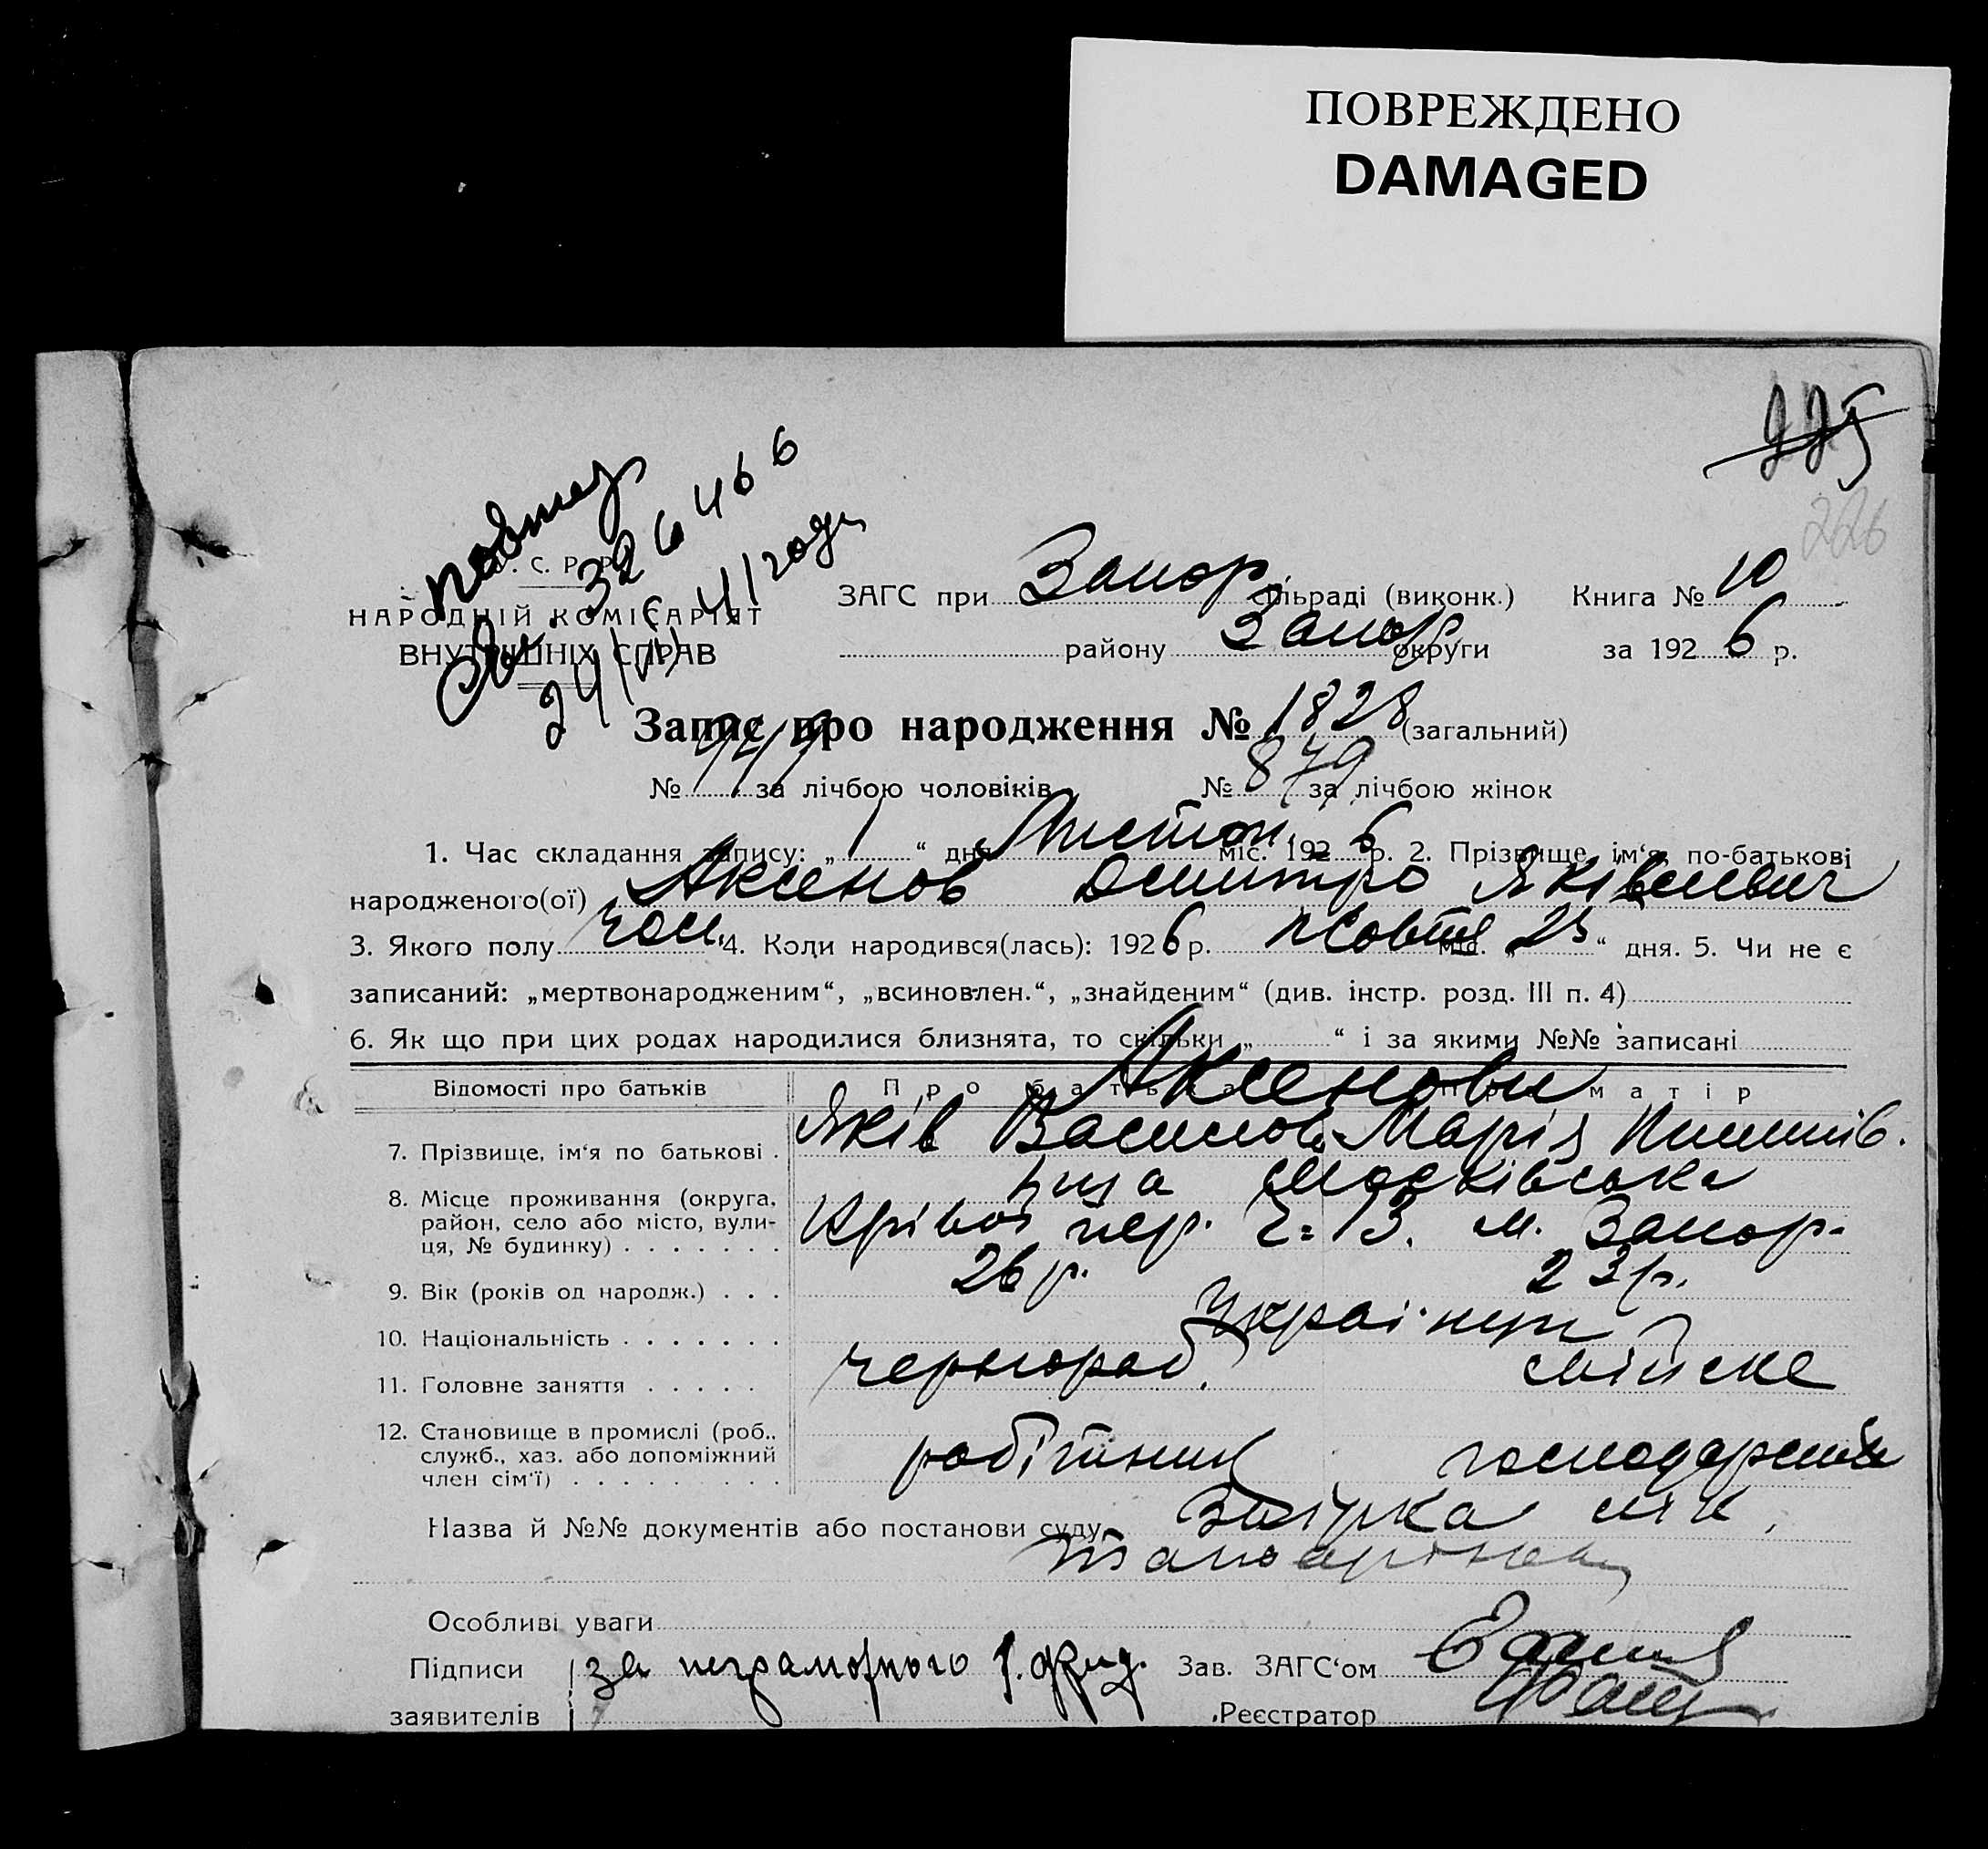 ПОВРЕЖДЕНО
DAMAGED
225
226
повтор
св. 326466
29/VII 41 года
У. С. Р. Р.
НАРОДНІЙ КОМІСАРІЯТ
ВНУТРІШНІХ СПРАВ
ЗАГС при Запор сільраді (виконк.) Книга № 10
району Запор округи за 192 6 р.
Запис про народження № 1828 (загальний)
№ 949 за лічбою чоловіків № 879 за лічбою жінок
1. Час складання запису: „ 1 “ дня Листоп. міс. 192 6 р. 2. Прізвище, ім‘я, по-батькові
народженого(ої) Аксенов Дмитро Яківлевич
3. Якого полу чол. 4. Коли народився(лась): 192 6 р. Жовтня міс. „ 25 “ дня. 5. Чи не є
записаний: „мертвонародженим“, „всиновлен.“, „знайденим“ (див. інстр. розд. III п. 4)
6. Як що при цих родах народилися близнята, то скільки „ “ і за якими №№ записані
Відомості про батьків Про батька Про матір
Аксенови
7. Прізвище, ім‘я по батькові . Яків Васильов. Марія
8. Місце проживання (округа, район, село або місто, вулиця, № будинку) . . . . . . . Московська
Крівой пер. ч. 13. м. Запор.
9. Вік (років од народж.) . . . 26 р. 23 р.
10. Національність . . . . . . . Українці
11. Головне заняття . . . . . чернороб.
12. Становище в промислі (роб.,
служб., хаз. або допоміжний
член сім‘ї) . . . . . . . . . робітник
Назва й №№ документів або постанови суду
Особливі уваги
Підписи за неграмотного Зав. ЗАГС‘ом
заявителів Реєстратор